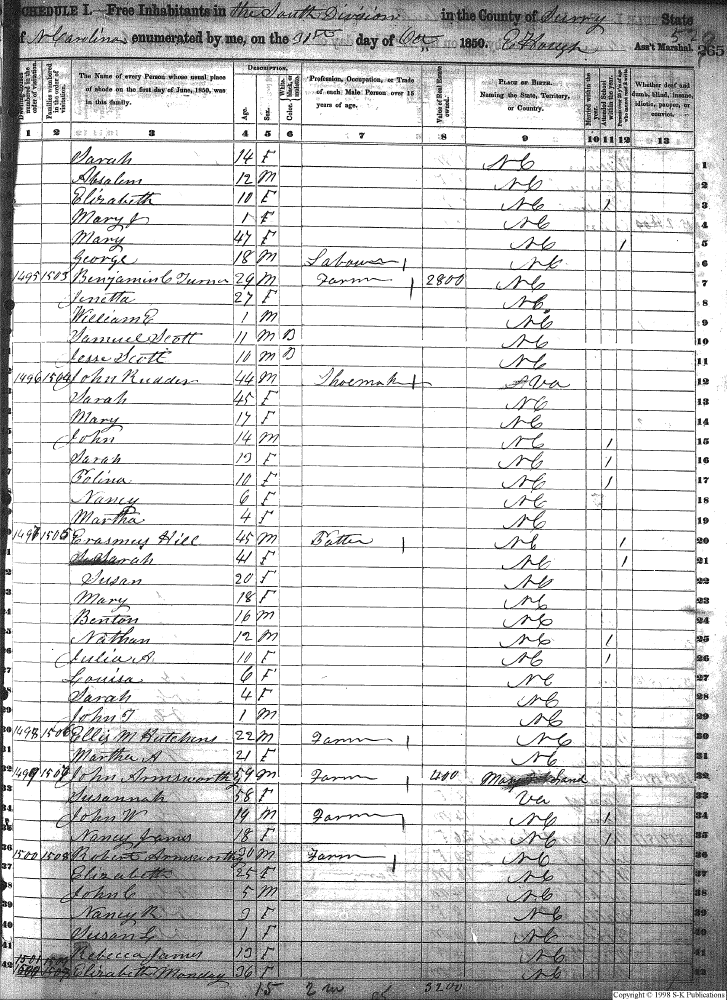 SCHEDULE I.—Free Inhabitants in the South Division in the County of Surry State
of N Carolina enumerated by me, on the 31st day of Oct 1850. Ass't Marshal.
265
The Name of every Person whose usual place of abode on the first day of June, 1850, was in this family.
DESCRIPTION.
Age.
Sex.
Profession, Occupation, or Trade of each Male Person over 15 years of age.
Value of Real Estate owned.
PLACE OF BIRTH. Naming the State, Territory, or Country.
Whether deaf and dumb, blind, insane, idiotic, pauper, or convict.
1 2 3 4 5 6 7 8 9 10 11 12 13
Sarah 14 F NC 1
Absalem 12 M NC
Elizabeth 10 F NC 1 3
Mary J 1 F NC 4
Mary 47 F NC 1 5
George 18 M Labourer NC 6
1495 1503 Benjamin C Turner 29 M Farmer 2800 NC 7
Jenetta 27 F NC 8
William E 1 M NC 9
Samuel Scott 11 M B NC 10
Jesse Scott 10 M B NC 11
1496 1504 John Rudder 44 M Shoemaker Va 12
Sarah 45 F NC 13
Mary 17 F NC 14
John 14 M NC 1 15
Sarah 13 F NC 1 16
10 F NC 1 17
Nancy 6 F NC 18
Martha 4 F NC 19
1497 1505 Erasmus Hill 45 M Hatter NC 1 20
Sarah 41 F NC 1 21
Susan 20 F NC 22
Mary 18 F NC 23
Benton 16 M NC 24
Nathan 12 M NC 1 25
Julia A 10 F NC 1 26
Louisa 6 F NC 27
Sarah 4 F NC 28
John T 1 M NC 29
1498 1506 Ellis M Hutchens 22 M Farmer NC 30
Martha A 21 F NC
1499 1507 John Armsworthy 59 M Farmer 400 Maryland 32
Susannah 58 F Va 33
John W 19 M Farmer NC 1 34
Nancy James 18 F NC 1 35
1500 1508 Robert Armsworthy 30 M Farmer NC 36
Elizabeth 25 F NC 37
John C 5 M NC 38
Nancy R 3 F NC 39
Susan C 1 F NC
Rebecca James 13 F NC 41
Elizabeth Monday 36 F NC
15 3200
Copyright © 1998 S-K Publications